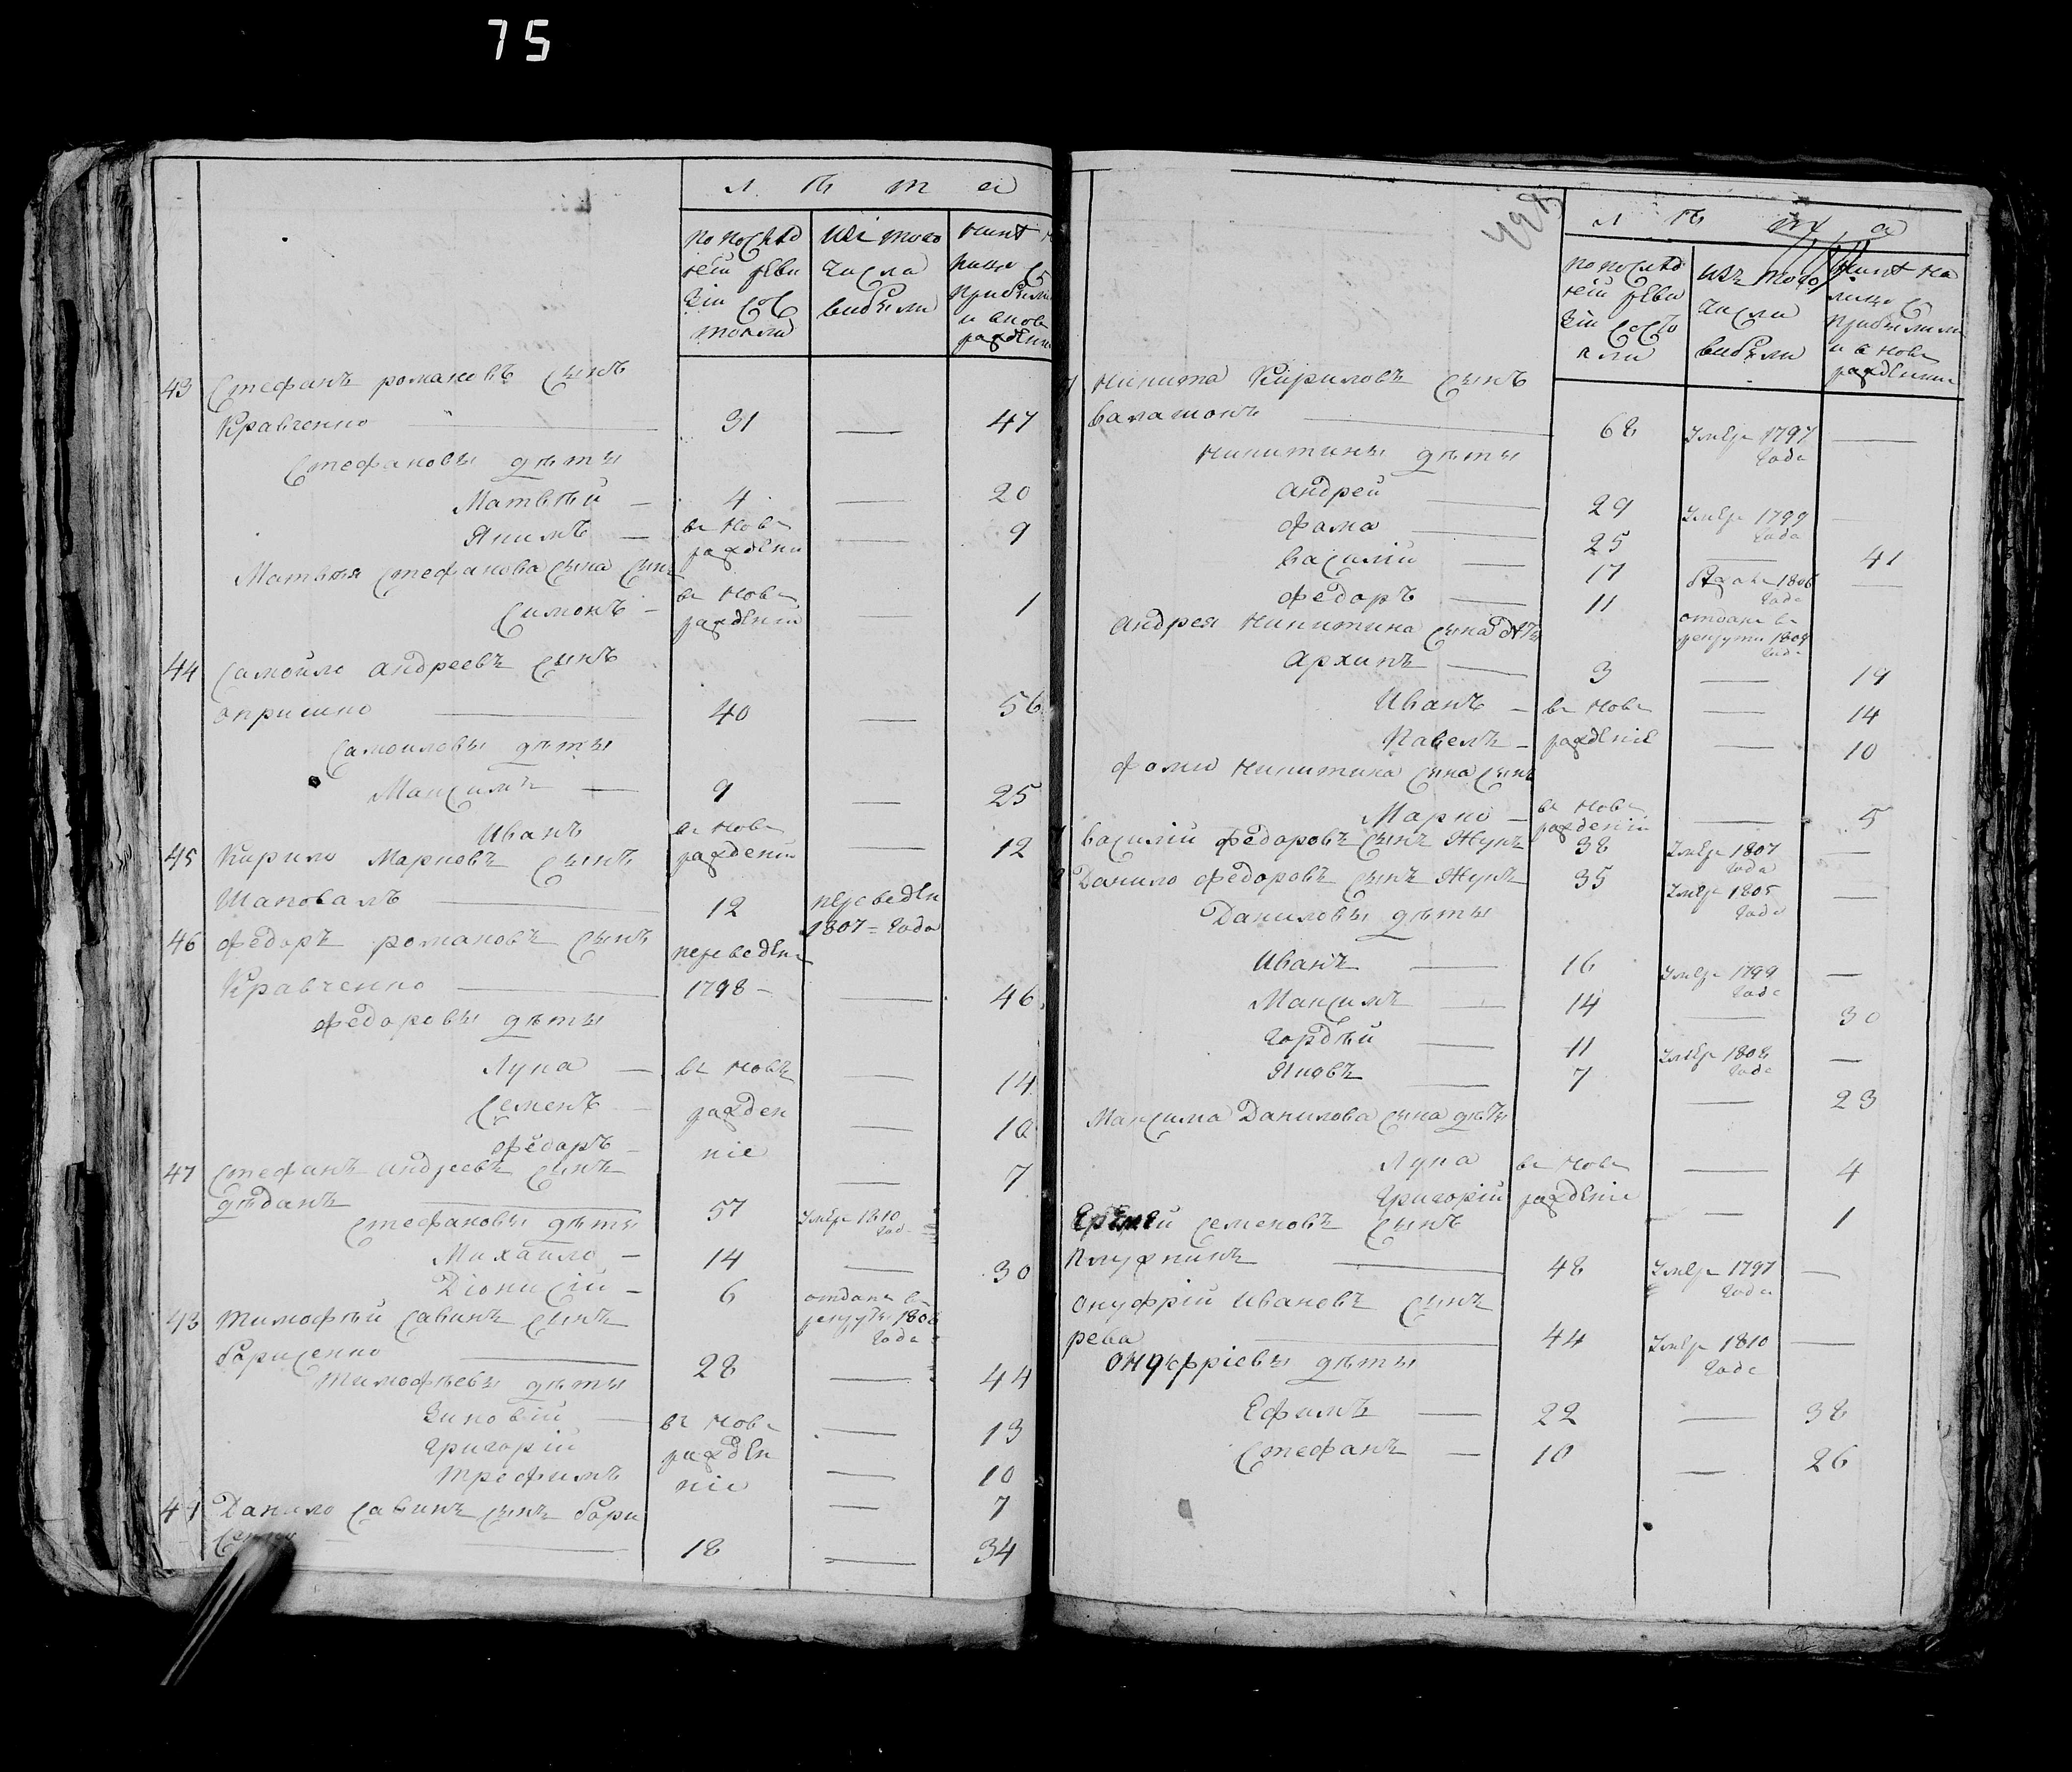 75
л ѣ т а
По послѣд
ней реви
зіи сос
тояли
изъ того
числа
выбыли
нинѣ
прибыли
и вновь
рожденн
43 Стефанъ романовъ сынъ
Кравченко 31 — 47
Стефановы дѣты
Матвѣй — 4 — 20
Якимъ — въ новъ 9
рожденіи
Матвѣя стефанова сына сынъ
Симонъ — въ новъ — 1
рожденіи
44 Самойло андреевъ сынъ
опришко 40 — 56
Самоиловы дѣты
Максимъ — 9 — 25
Иванъ въ новъ — 12
рожденіи
45 Кирило Марковъ сынъ
Шаповалъ 12 переведен
1807 = года
46 Федоръ романовъ сынъ переведен
Кравченко 1798 — 46
Федоровы дѣты
Лука — въ новъ — 14
Семенъ — рожден — 10
Федоръ — ніе — 7
47 Стефанъ андреевъ сынъ
дѣданъ 57 Умер 1810
год
Стефановы дѣты
Михайло — 14 — 30
Діонисій — 6 отданъ в
рекруты 1806
года
48 Тимофѣй Савинъ сынъ
борисенко 28 — 44
Тимофѣевы дѣты
Зиновій — въ новъ — 13
Григорій рожден — 10
Трофимъ ніе — 7
49 Данило Савинъ сынъ бори
сенко 18 — 34
498
л ѣ т а
По послѣд
ней реви
зіи состо
яли
изъ того
числа
выбыли
нинѣ на
лицо съ
прибылими
и в новъ
рожденними
Никита Кириловъ сынъ
балашонъ 68 Умер 1797 —
года
Никитины дѣты
андрей 29 Умер 1799 —
года
Фома 25 — 41
Василій 17 1806 —
года
Федоръ 11 отданъ в
рекруты 1809
года
андрея Никитина сына дѣты
Архипъ 3 — 19
Иванъ — въ новъ — 14
Павелъ — рожденіе — 10
Фоми Никитина сина сынъ
Марко — въ новъ — 5
рожденіи
Василій Федоровъ сынъ Жукъ 38 Умер 1807 —
года
Данило Федоровъ сынъ Жукъ 35 Умер 1805 —
года
Даниловы дѣты
Иванъ 16 Умер 1799 —
года
Максимъ 14 — 30
Гордѣй 11 Умер 1808 —
года
Яковъ 7 — 23
Максима Данилова сына дѣты
Лука въ новъ — 4
Григорій рожденіи — 1
Еремей Семеновъ сынъ
Плужникъ 48 Умер 1797 —
года
Онуфрій Ивановъ сынъ
рева 44 Умер 1810 —
года
Онуфріевы дѣты
Ефимъ — 22 — 38
Стефанъ — 10 — 26